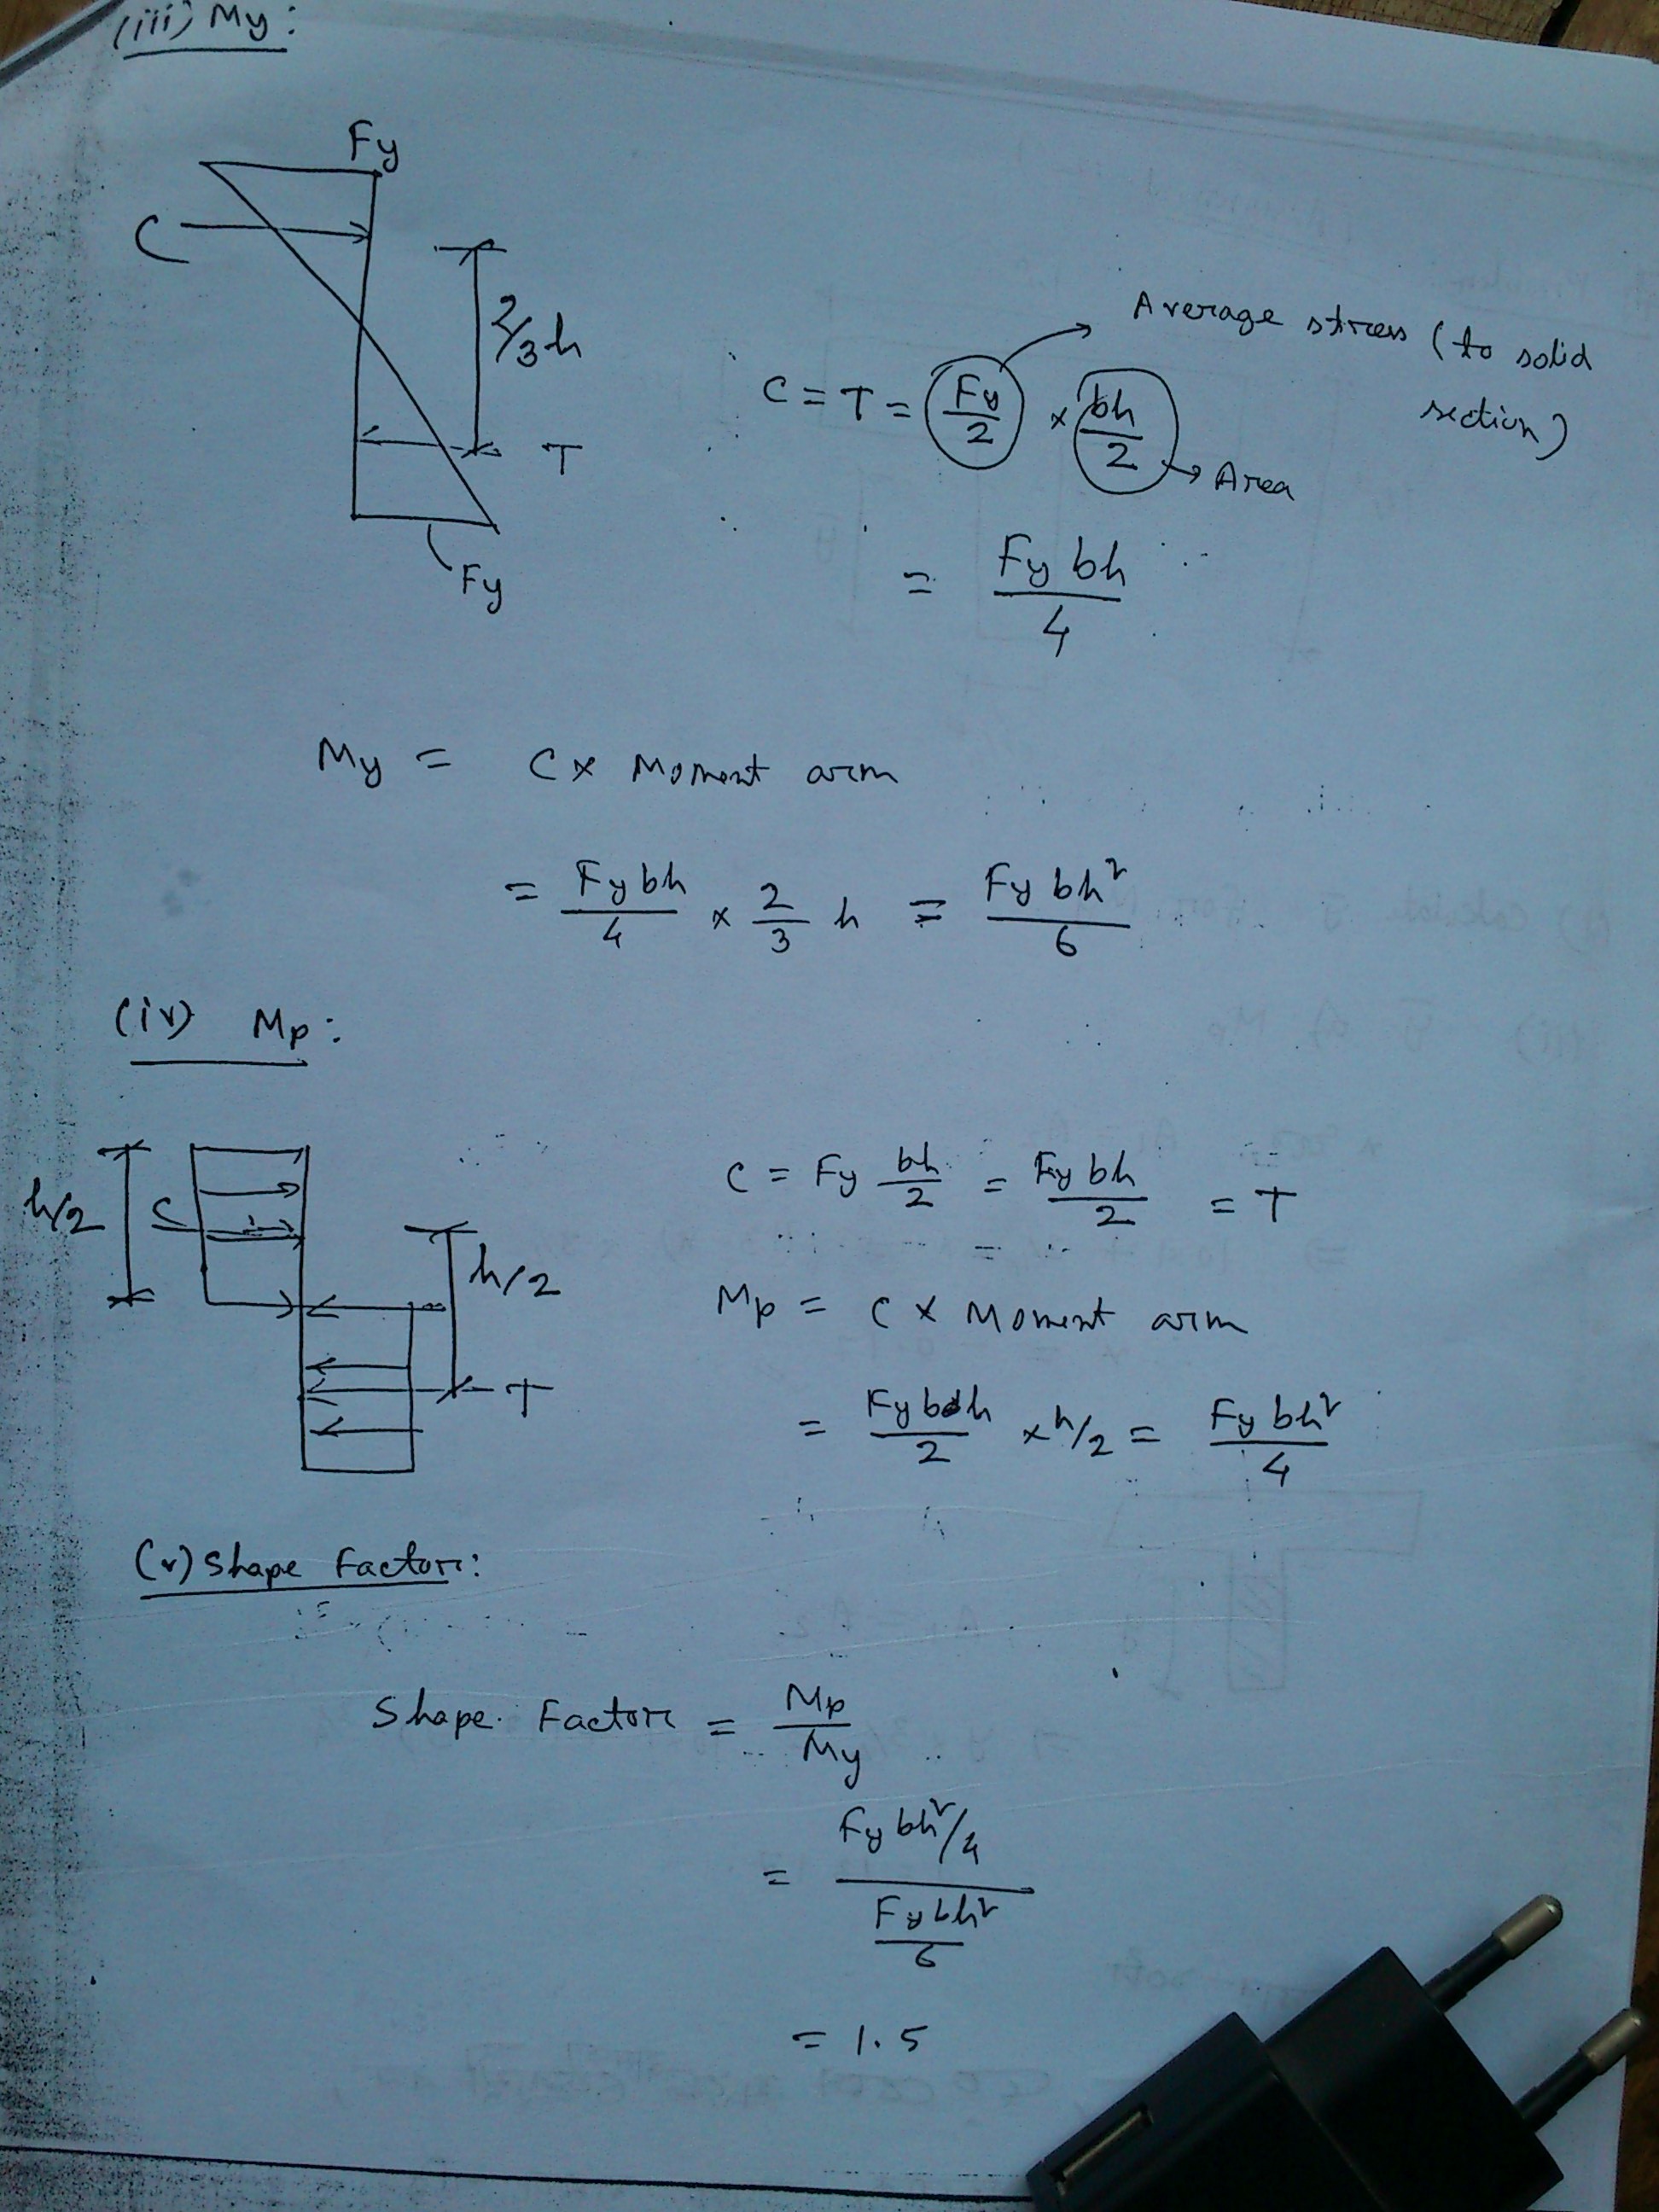 (iii) My:
Fy
C
2/3 h
T
Fy
Average stress (to solid
section)
C = T = Fy/2 × bh/2
Area
= Fy bh/4
My = C × Moment arm
= Fy bh/4 × 2/3 h = Fy bh²/6
(iv) Mp:
h/2
C
h/2
T
C = Fy bh/2 = Fy bh/2 = T
Mp = C × Moment arm
= Fy bh/2 × h/2 = Fy bh²/4
(v) Shape Factor:
Shape Factor = Mp/My
= Fy bh²/4 / Fy bh²/6
= 1.5